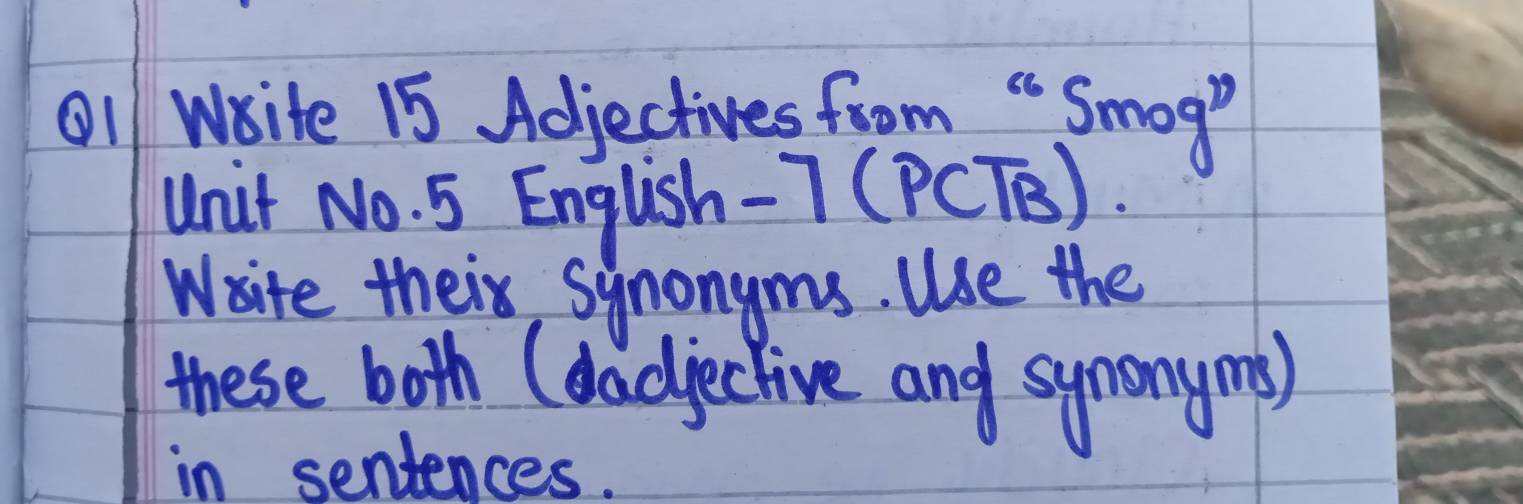 Q1 Write 15 Adjectives from "Smog"
Unit No.5 English-7 (PCTB).
Write their Synonyms. Use the
these both (dadjective and synonyms)
in sentences.